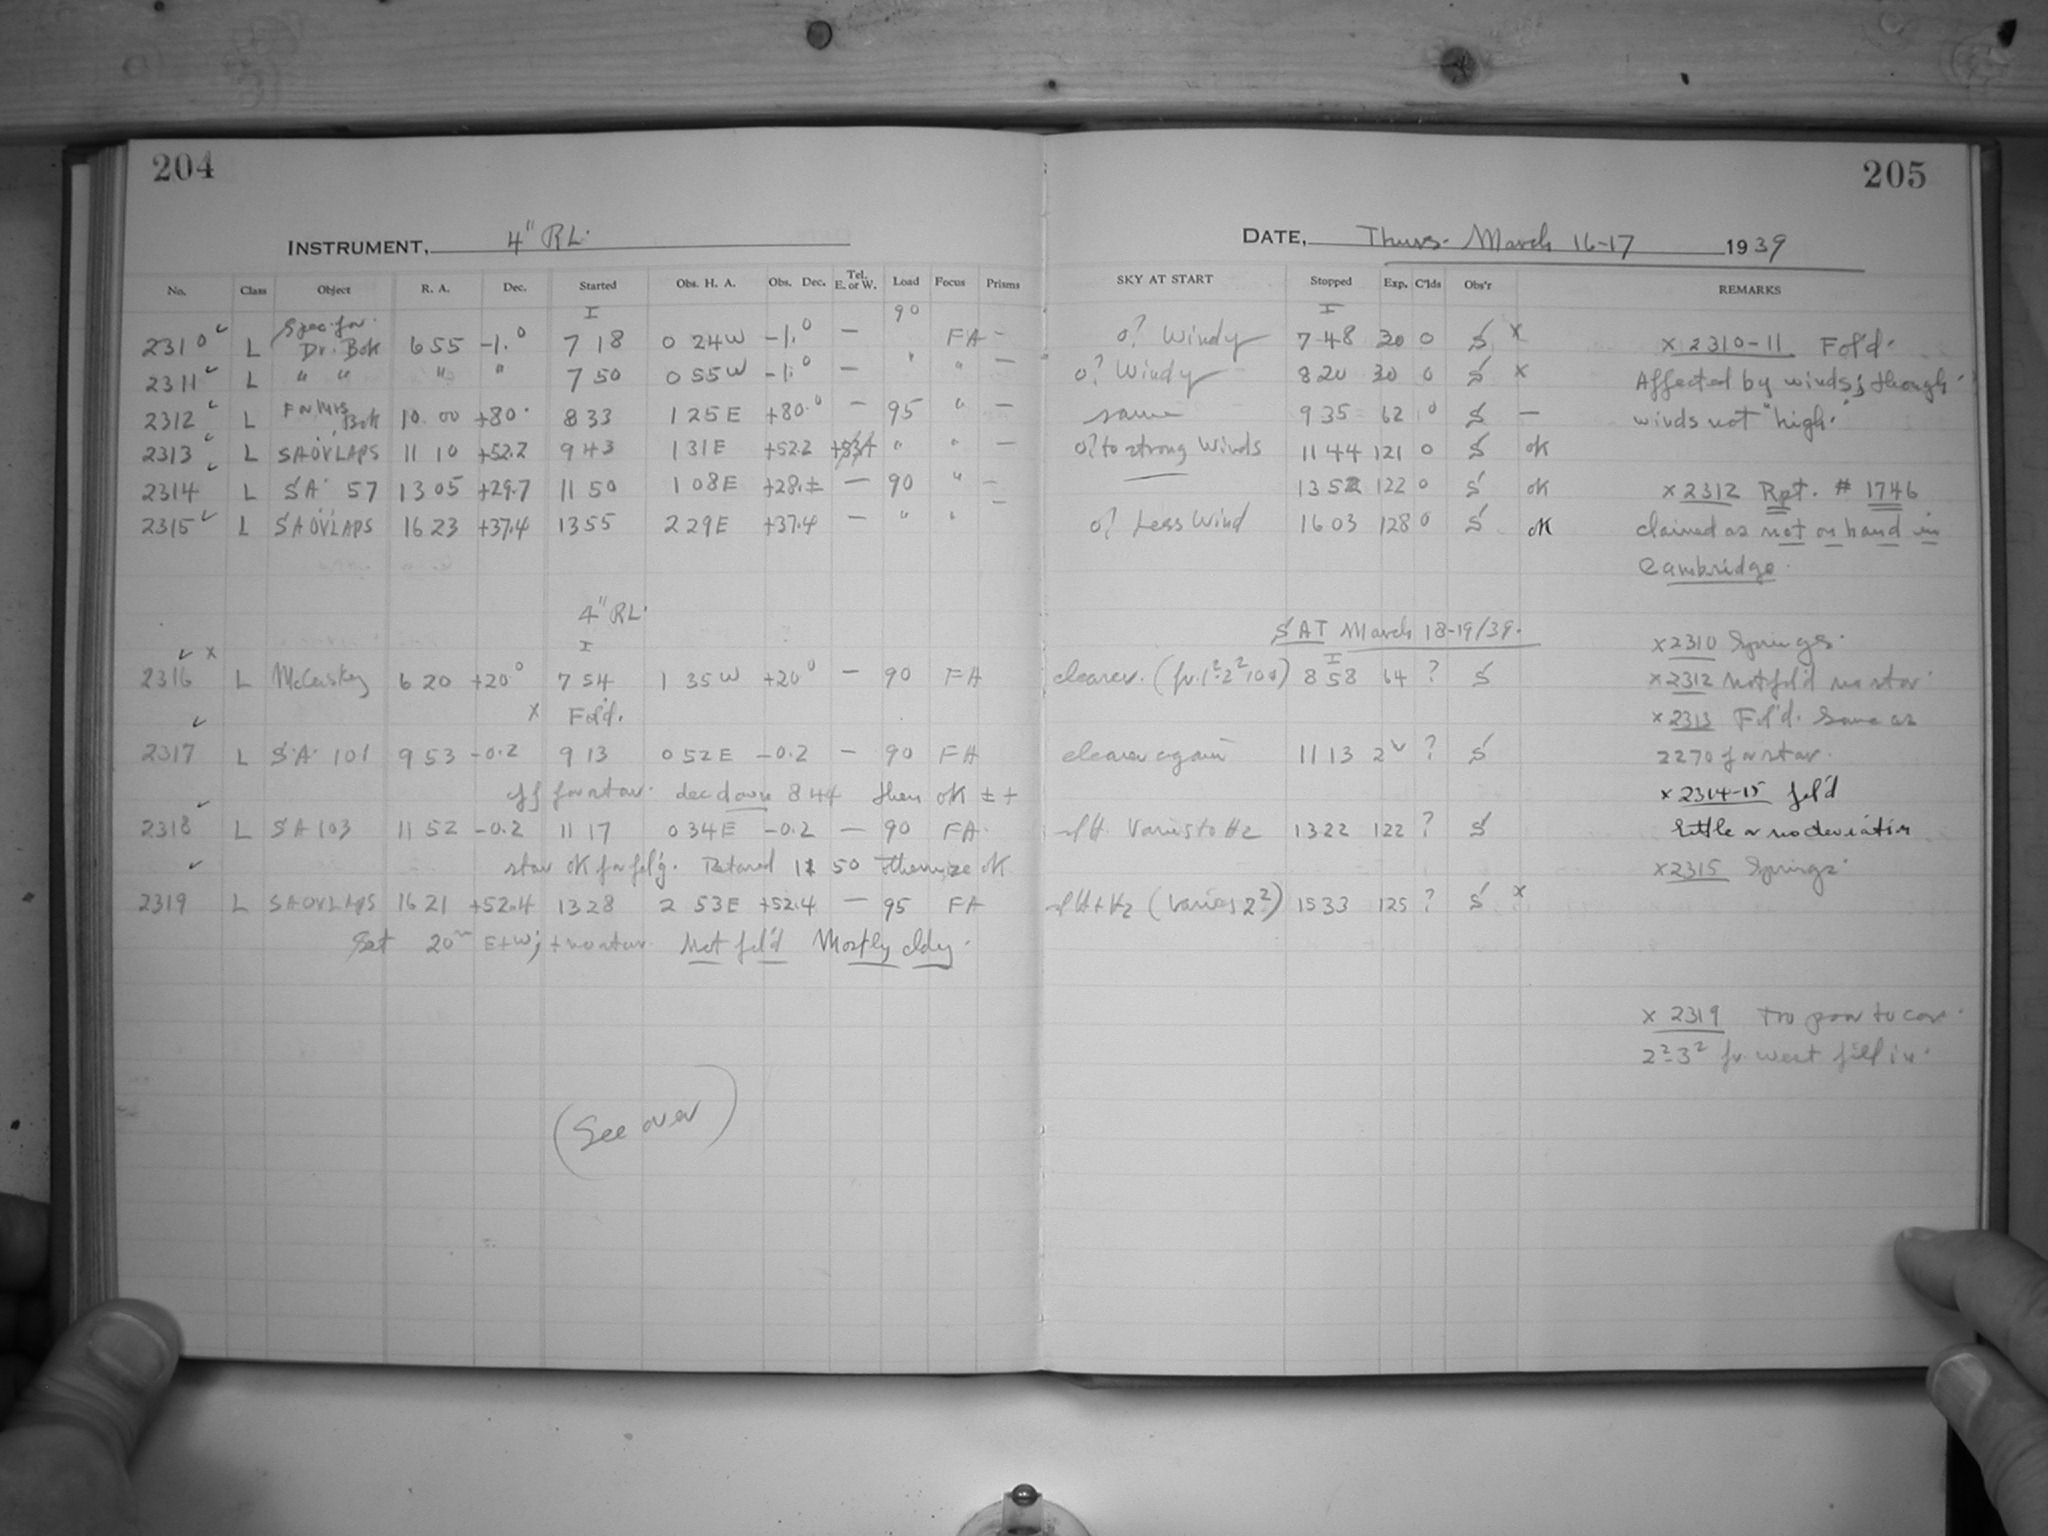 204
INSTRUMENT, 4" RL.
No. Class Object R. A. Dec. Started Obs. H. A. Obs. Dec. Tel. E. or W. Load Focus Prisms
I 90
2310 L Spec. for Dr. Bok 6 55 -1.° 7 18 0 24W -1.° — FA —
2311 L " " " " 7 50 0 55W -1.° — " " —
2312 L For Mrs Bok 10 00 +80° 8 33 1 25E +80.° — 95 " —
2313 L SA OVLAPS 11 10 +52.2 9 43 1 31E +52.2 " " —
2314 L SA 57 13 05 +29.7 11 50 1 08E +28.± — 90 " —
2315 L SA OVLAPS 16 23 +37.4 13 55 2 29E +37.4 — " " —
4" RL.
I
2316 x L McCuskey 6 20 +20° 7 54 1 35W +20° — 90 FA
x Fol'd.
2317 L S.A. 101 9 53 -0.2 9 13 0 52E -0.2 — 90 FA
off for star. dec down 8 44 then OK ± +
2318 L SA 103 11 52 -0.2 11 17 0 34E -0.2 — 90 FA
star OK for fol'g. 50 otherwise OK
2319 L SA OVLAPS 16 21 +52.4 13 28 2 53E +52.4 — 95 FA
Set 20m E+W; + no star. Not fol'd Mostly cldy.
(See over)
205
DATE, Thurs. March 16-17 1939
SKY AT START Stopped Exp. C'lds Obs'r REMARKS
I
o? Windy 7 48 30 0 S x
o? Windy 8 20 30 0 S x
same 9 35 62 0 S —
o? to strong Winds 11 44 121 0 S OK
13 52 122 0 S OK
o? Less Wind 16 03 128 0 S OK
SAT March 18-19/39.
I
clearer. 8 58 64 ? S
clearer again 11 13 ? S
Varies to H2 13 22 122 ? S
(varies 2²) 15 33 125 ? S x
x 2310-11 Fol'd.
Affected by winds; though
winds not "high."
x 2312 Rpt. # 1746
claimed as not on hand in
Cambridge.
x 2310 Springs.
x 2312 Not fol'd no star
x 2313 Fol'd. Same as
2270 for star.
x 2314-15 fol'd
little or no deviation
x 2315 Springs.
x 2319 Too poor to con.
2²-3² fr. west fill in.